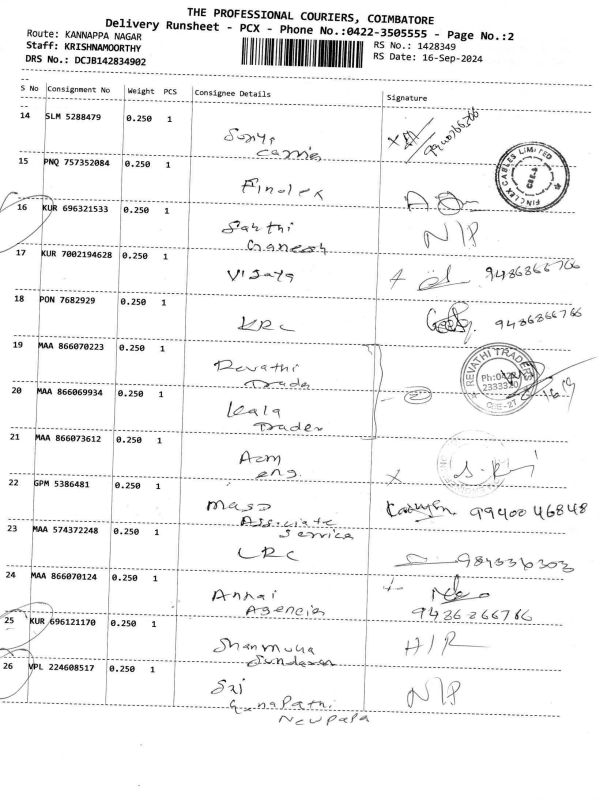 THE PROFESSIONAL COURIERS, COIMBATORE
Delivery Runsheet - PCX - Phone No.:0422-3505555 - Page No.:2
Route: KANNAPPA NAGAR
Staff: KRISHNAMOORTHY
DRS No.: DCJB142834902
RS No.: 1428349
RS Date: 16-Sep-2024
S No Consignment No Weight PCS Consignee Details Signature
14 SLM 5288479 0.250 1
15 PNQ 757352084 0.250 1
Finolex
FINOLEX CABLES LIMITED
CBE-2
16 KUR 696321533 0.250 1
Sakthi
Ganesh
N/P
17 KUR 7002194628 0.250 1
Vijaya
9486866766
18 PON 7682929 0.250 1
KRC
9486866766
19 MAA 866070223 0.250 1
Revathi
Trader
REVATHI TRADERS
Ph:0422
2333320
CBE-27
20 MAA 866069934 0.250 1
Kala
Trader
21 MAA 866073612 0.250 1
Eng.
22 GPM 5386481 0.250 1
Mass
Associate
Service
9940046848
23 MAA 574372248 0.250 1
LRC
24 MAA 866070124 0.250 1
Annai
Agencies
25 KUR 696121170 0.250 1
Shanmuga
Sundaram
26 VPL 224608517 0.250 1
Sri
Ganapathi
N/P